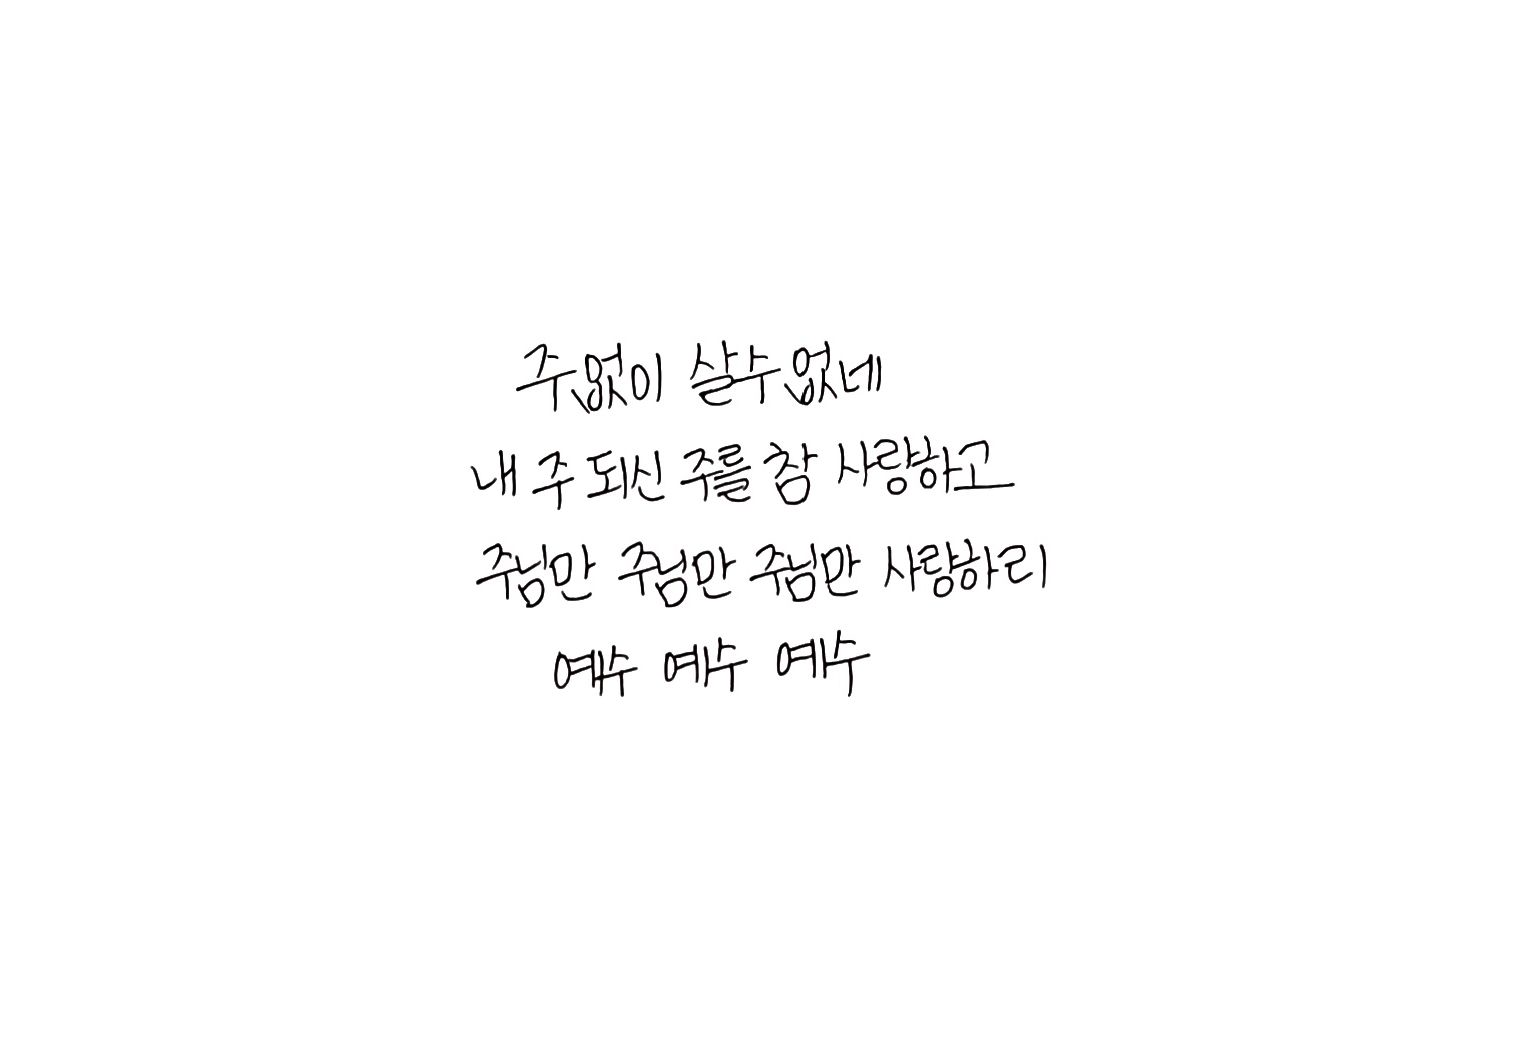 주없이 살수없네
내 주 되신 주를 참 사랑하고
주님만 주님만 주님만 사랑하리
예수 예수 예수